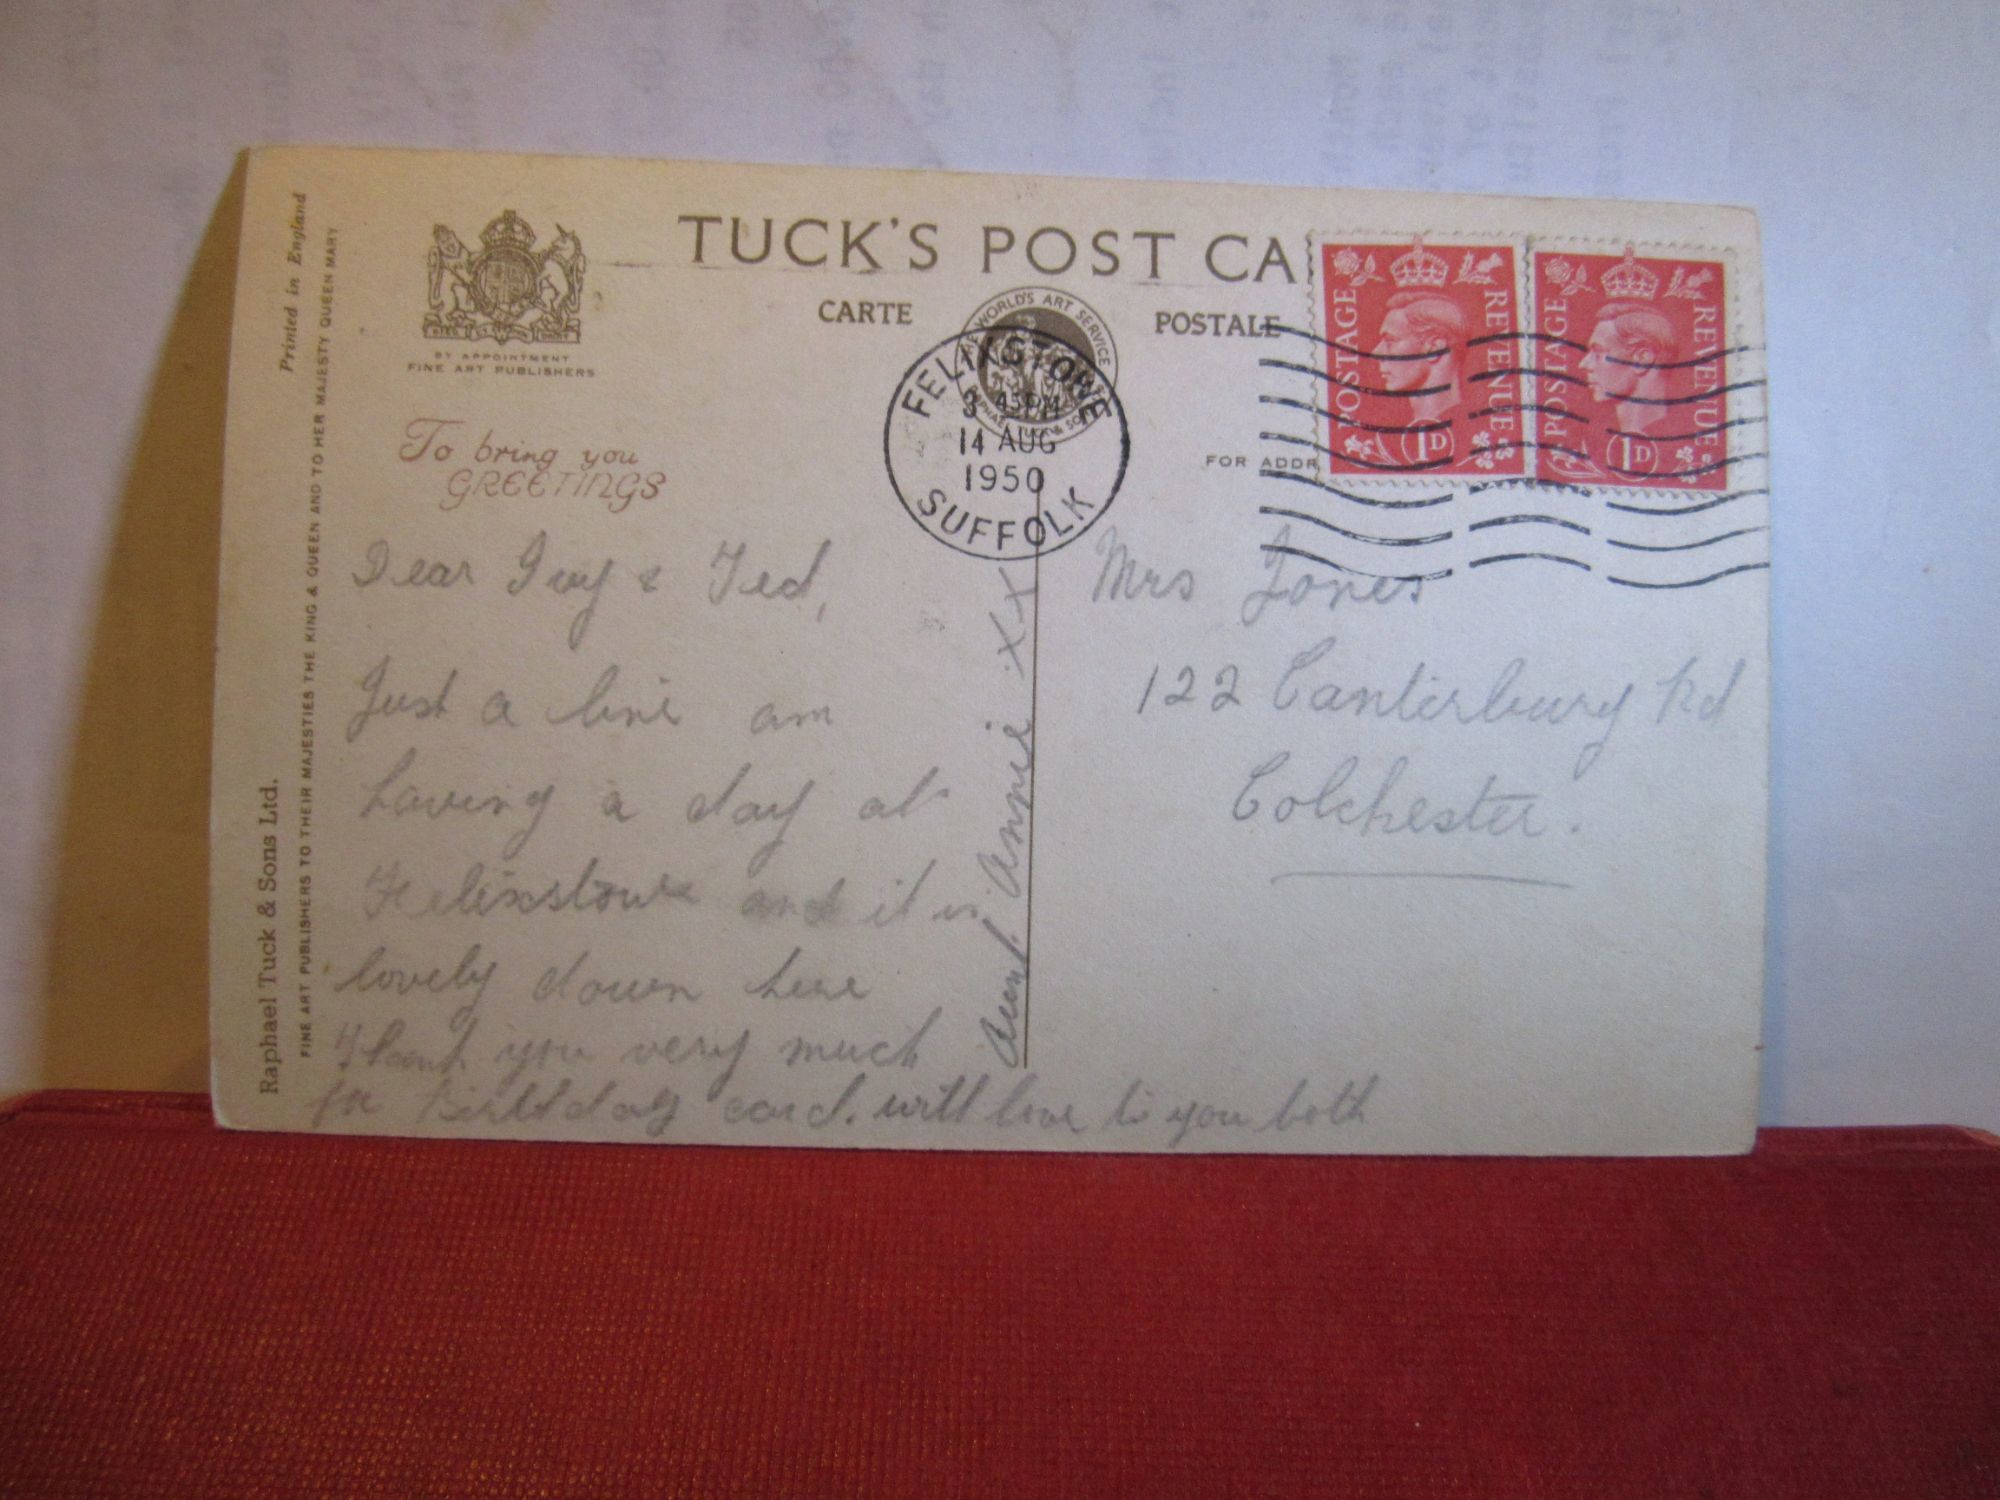 TUCK'S POST CA
CARTE POSTALE
BY APPOINTMENT
FINE ART PUBLISHERS
THE WORLD'S ART SERVICE
RAPHAEL TUCK & SO
FELIXSTOWE
3 45PM
14 AUG
1950
SUFFOLK
POSTAGE REVENUE
1D
POSTAGE REVENUE
1D
FOR ADDR
To bring you
GREETINGS
Dear Ivy & Ted,
Just a line am
having a day at
Felixstowe and it is
lovely down here
Thank you very much
for Birthday card. with love to you both
Aunt Annie XX
Mrs Jones
122 Canterbury Rd
Colchester.
Printed in England
Raphael Tuck & Sons Ltd.
FINE ART PUBLISHERS TO THEIR MAJESTIES THE KING & QUEEN AND TO HER MAJESTY QUEEN MARY